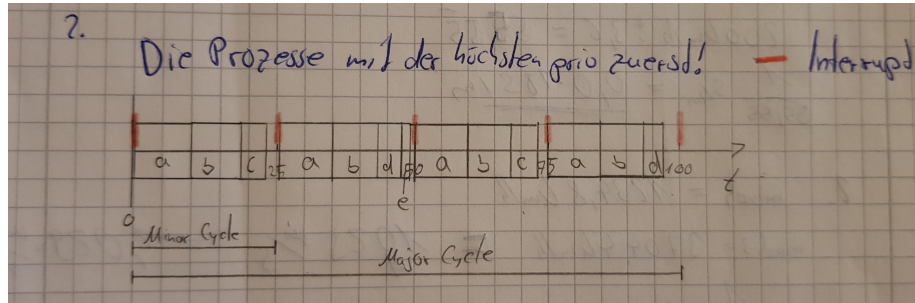 2.
Die Prozesse mit der höchsten prio zuersd! — Interrupd
a b c 25 a b d 50 a b c 75 a b d 100
t
e
0
Minor Cycle
Major Cycle